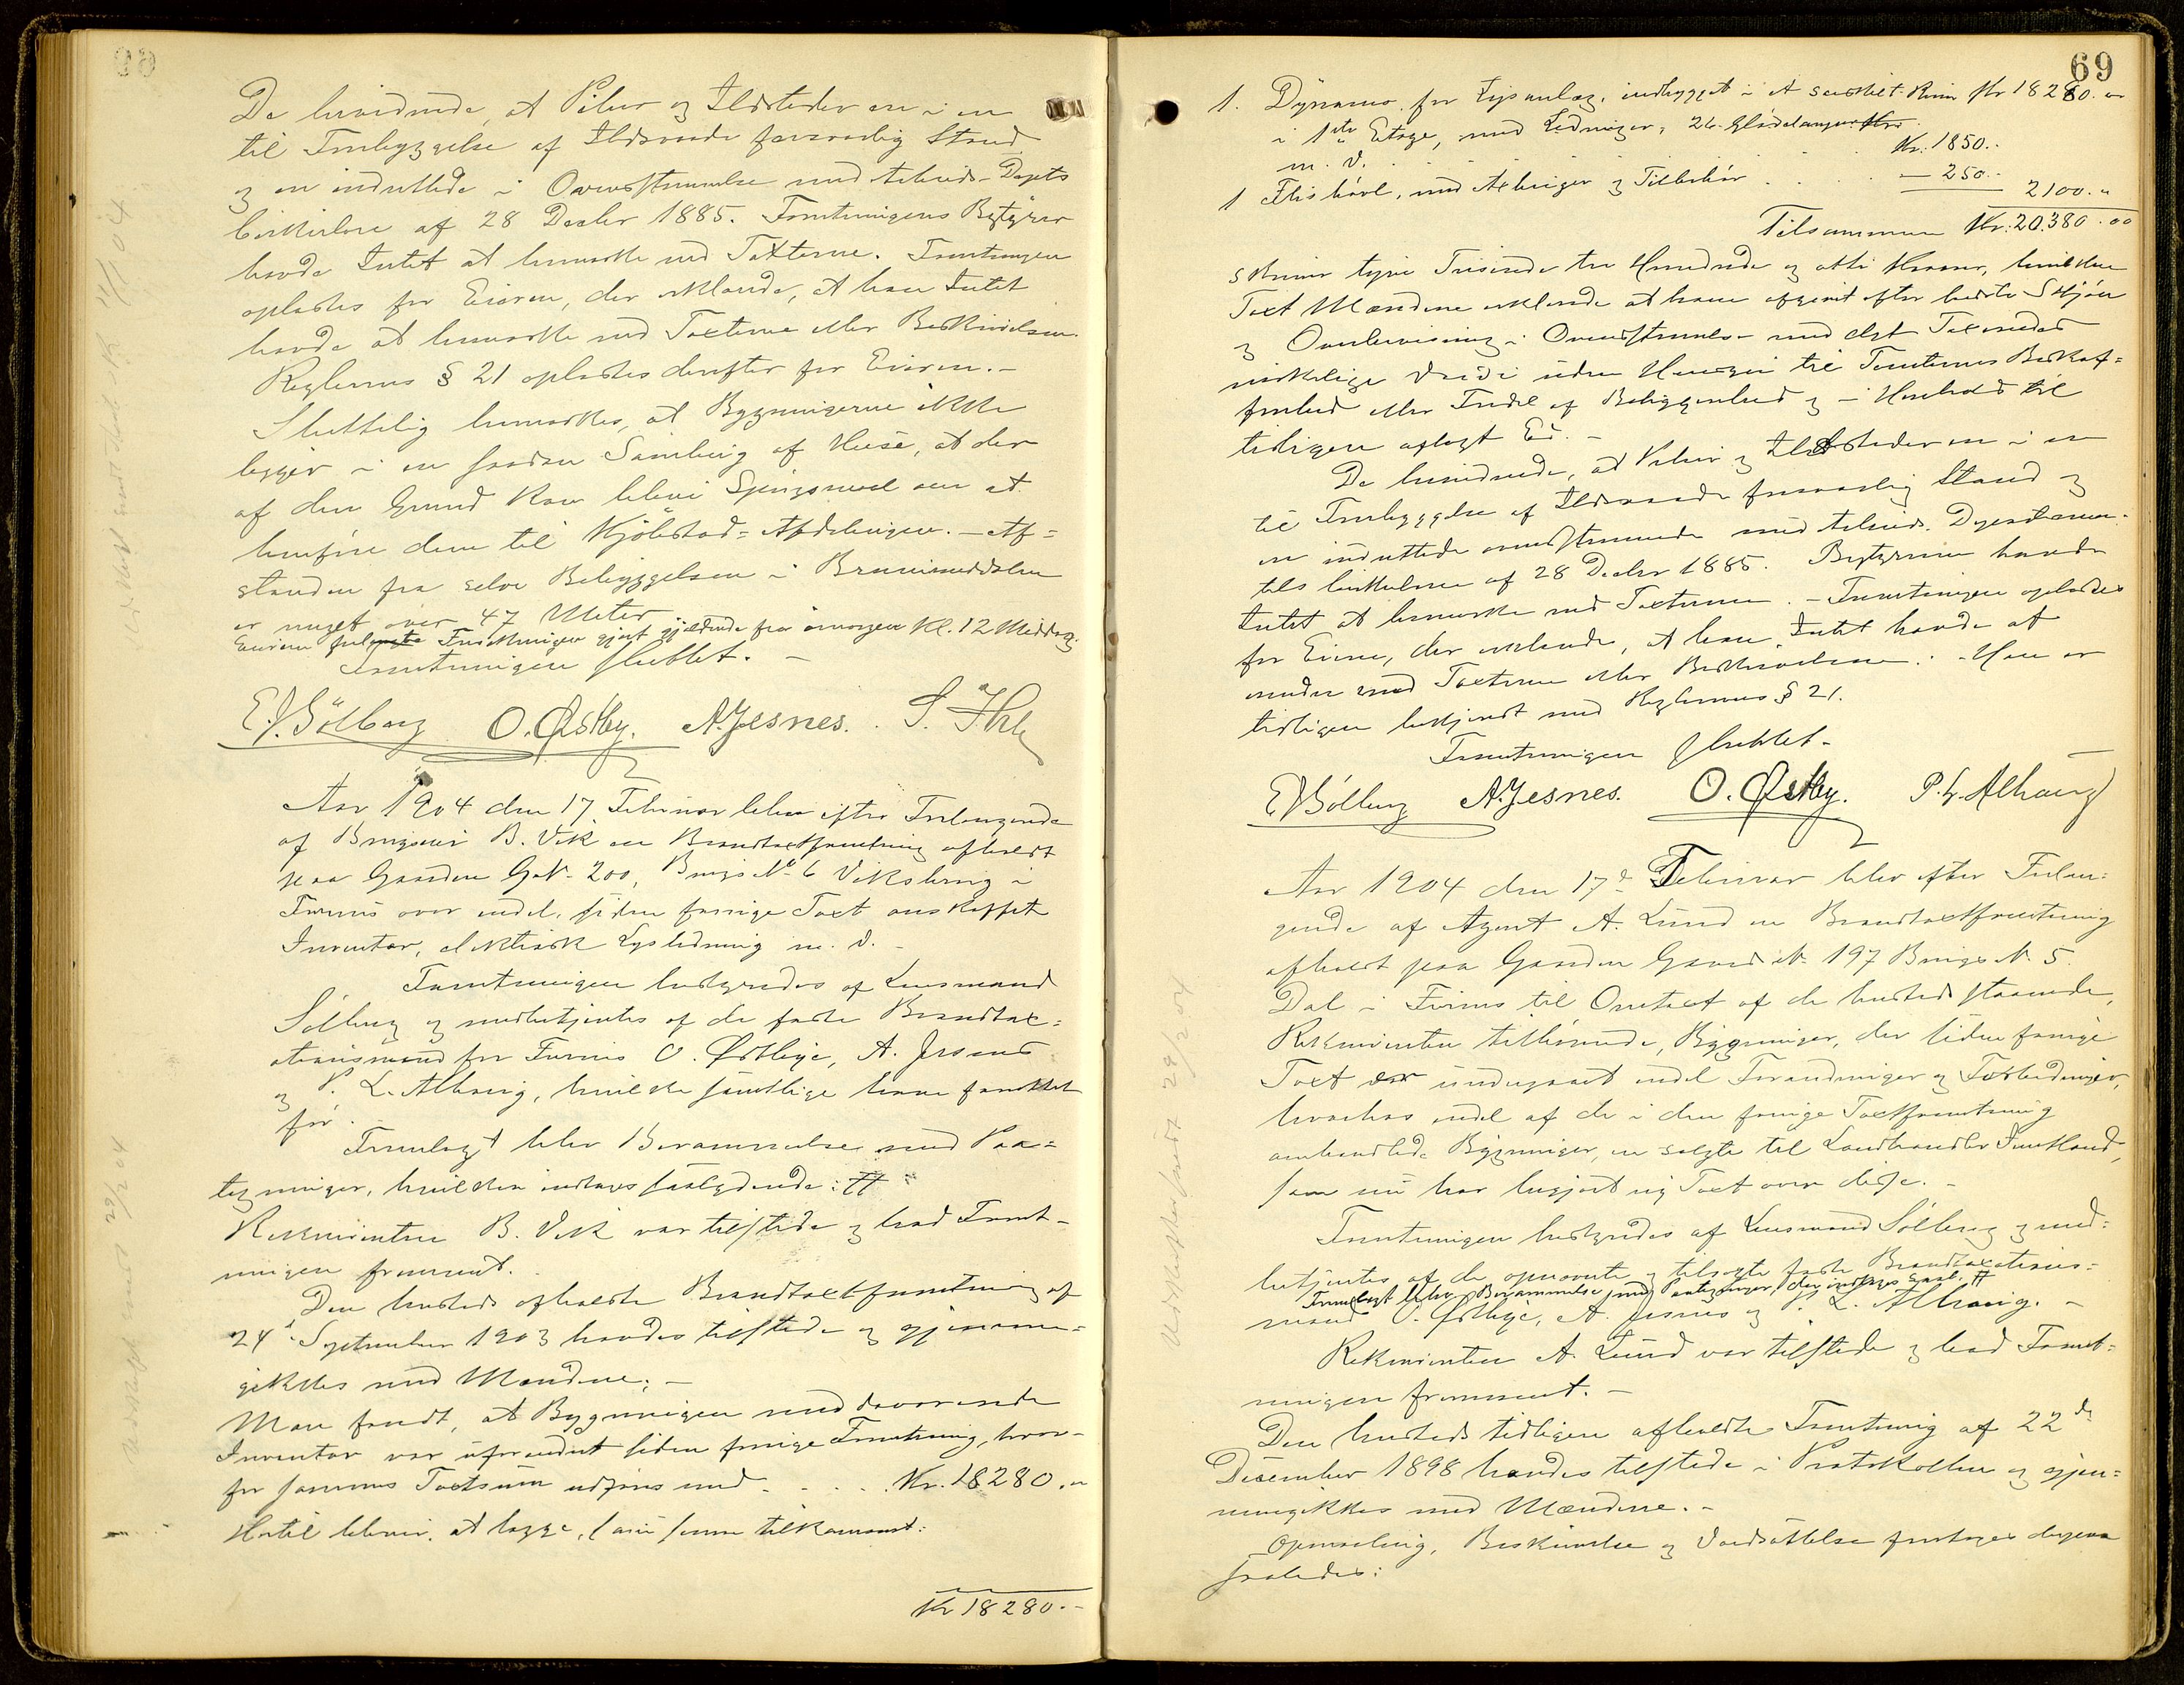 De bevidnede, at Piber og Ildsteder ere i en
til Forebyggelse af Ildsvaade forsvarlig Stand
og ere indrettede i Overensstemmelse med Arbeids-Depts
Cirkulære af 28 Decbr 1885. Forretningens Bestyrer
havde Intet at bemærke ved Taxterne. Forretningen
oplæstes for Eieren, der erklærede, at have Intet
havde at bemærke ved Taxterne eller Beskrivelsen.
Reglernes § 21 oplæstes derefter for Eieren. -
Sluttelig bemærkes, at Bygningerne ikke
ligger i en saadan Samling af Huse, at der
af den Grund kan blive Spørgsmaal om at
henføre dem til Kjøbstad-Afdelingen. - Af=
standen fra selve Bebyggelsen i Brumunddalen
er noget over 47 Meter
Eieren Forsikringen gjort gjældende fra imorgen Kl. 12 Middag.
Forretningen sluttet. -
E. Sölberg O. Østby. A. Jesnes. S. Ihle
Aar 1904 den 17 Februar blev efter Forlangende
af Brugseier B. Vik en Brandtaxtforretning afholdt
paa Gaarden G.No 200, Brugs No 6 Viksbrug i
Furnes over endel, siden forrige Taxt anskaffet
Inventar, elektrisk Lysledning m. v. -
Forretningen bestyredes af Lensmand
Sölberg og medbetjentes af de faste Brandtax=
ationsmænd for Furnes O. Østbye, A. Jesnes
og P. L. Alhaug, hvilke samtlige have fungeret
før.
Fremlagt blev Berammelse med Paa=
tegninger, hvilken indtages saalydende: #
Rekvirenten B. Vik var tilstede og bad Forret-
ningen fremmet.
Den herسteds afholdte Brandtaxtforretning af
24de September 1903 havdes tilstede og gjennem=
gikkes med Mændene. -
Man fandt, at Bygningen med daværende
Inventar var uforandret siden forrige Forretning, hvor-
for sammes Taxtsum udføres med . . . . Kr. 18280. "
Hertil bliver at lægge, som senere tilkommet:
Kr 18280. -
29/2 04
69
1. Dynamo for Lysanlæg, indbygget i et særskilt Rum Kr 18280. "
i 1ste Etage, med Ledninger, 26 Glødelamper
m. v. . . . . Kr. 1850. -
1 Flishövl, med Axlinger og Tilbehør . . . . - 250. -
2100. "
Tilsammen Kr. 20.380.00
skriver tyve Tusinde tre Hundrede og otti Kroner, hvilken
Taxt Mændene erklærede at have afgivet efter bedste Skjøn
og Overbevisning i Overensstemmelse med det Taxeredes
virkelige Værdi uden Hensyn til Tomternes Beskaf=
fenhed eller Fordel af Beliggenhed og i Henhold til
tidligere aflagt Ed. -
De bevidnede, at Piber og Ildsteder ere i en
til Forebyggelse af Ildsvaade forsvarlig Stand og
er indrettede overensstemmende med Arbeids-Departemen-
tets Cirkulære af 28 Decbr 1885. Bestyreren havde
Intet at bemærke ved Taxterne. - Forretningen oplæstes
for Eieren, der erklærede, at have Intet havde at
erindre mod Taxterne eller Beskrivelsen. - Han er
tidligere bekjendt med Reglernes § 21.
Forretningen sluttet -
E. Sölberg A. Jesnes. O. Østby. P. L. Alhaug
Aar 1904 den 17de Februar blev efter Forlan=
gende af Agent A. Lund en Brandtaxtforretning
afholdt paa Gaarden Gaards No 197 Brugs No 5
Dal i Furnes til Omtaxt af de hersteds staaende,
Rekvirenten tilhørende, Bygninger, der siden forrige
Taxt er undergaaet endel Forandringer og Forbedringer,
hvorhos endel af de i den forrige Taxtforretning
omhandlede Bygninger, er solgte til Landhandler
som nu har begjært ny Taxt over disse. -
Forretningen bestyredes af Lensmand Sölberg og med=
betjentes af de opnævnte og tilsagte faste Brandtaxations=
Fremlagt blev Berammelse med Paategninger, der indtages saal. #
mænd O. Østbye, A. Jesnes og P. L. Alhaug. -
Rekvirenten A. Lund var tilstede og bad Forret-
ningen fremmet. -
Den hersteds tidligere afholdte Forretning af 22de
December 1898 havdes tilstede i Protokollen og gjen=
nemgikkes med Mændene. -
Opmaaling, Beskrivelse og Værdsættelse foretages derpaa
saaledes:
29/2 04